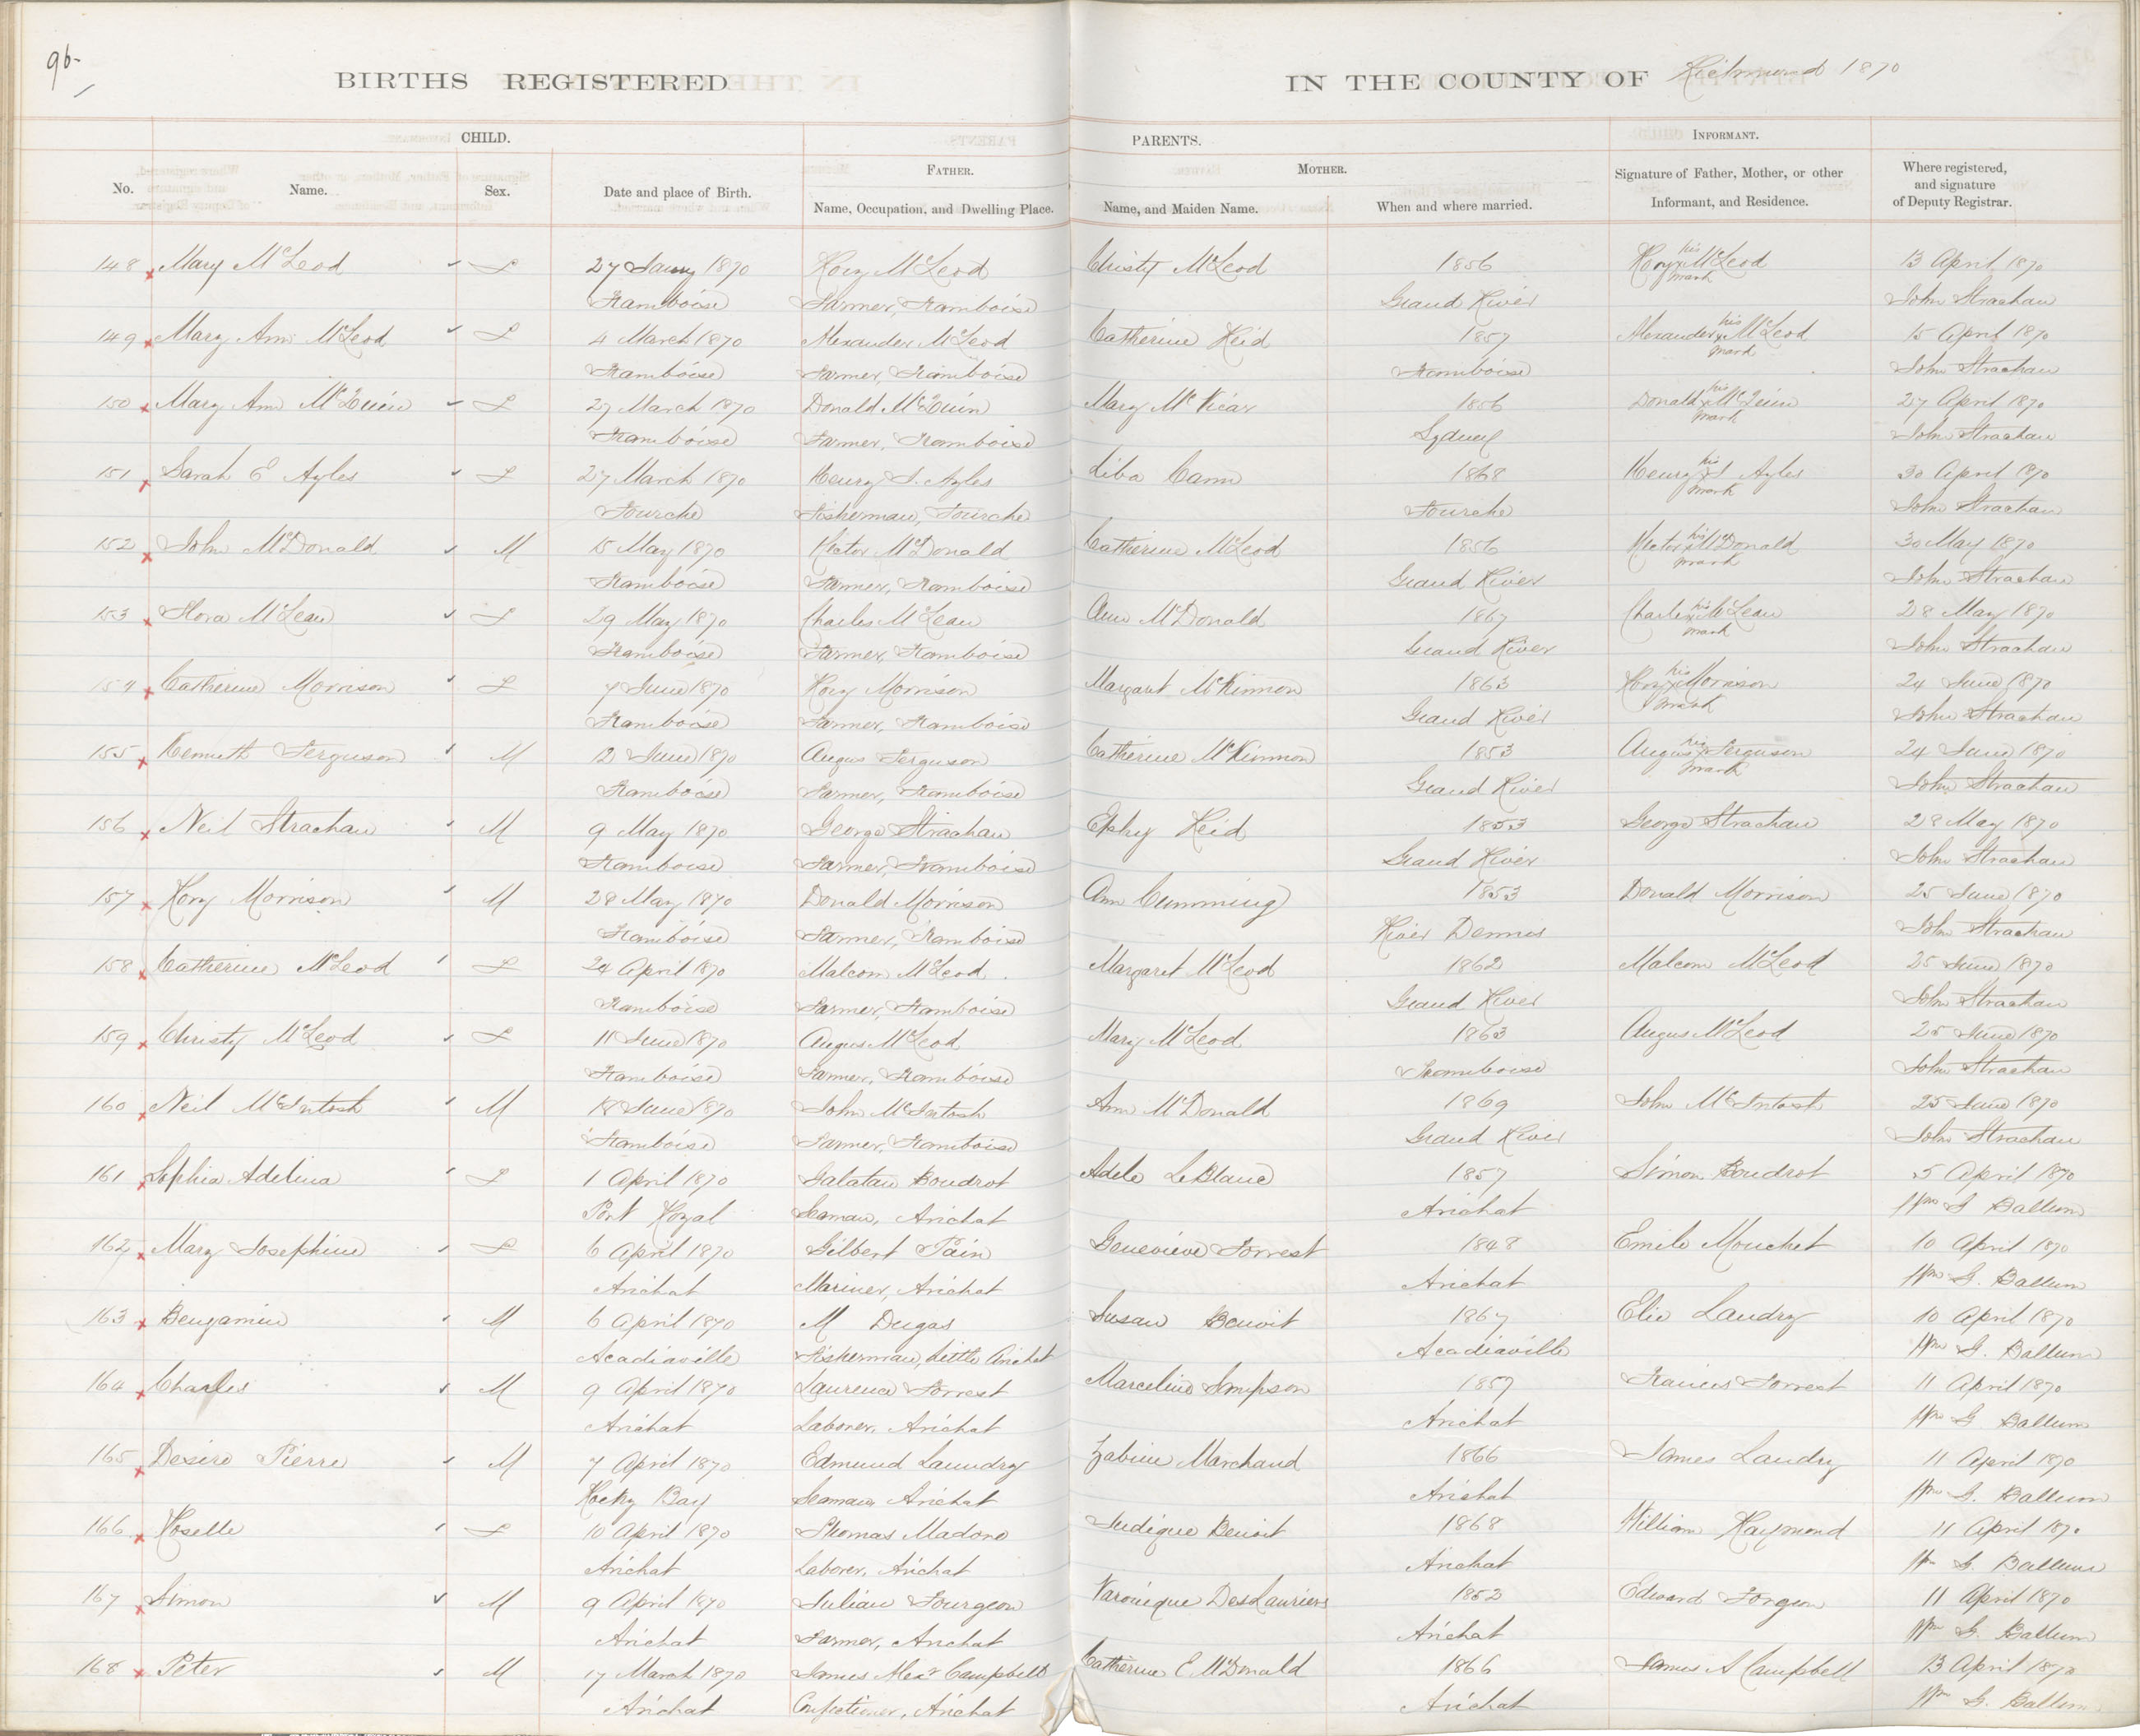 96-
BIRTHS REGISTERED IN THE COUNTY OF Richmond 1870
CHILD. PARENTS. INFORMANT.
FATHER. MOTHER.
No. Name. Sex. Date and place of Birth. Name, Occupation, and Dwelling Place. Name, and Maiden Name. When and where married. Signature of Father, Mother, or other Informant, and Residence. Where registered, and signature of Deputy Registrar.
148 Mary McLeod F 27 Jany 1870 Rory McLeod Christy McLeod 1856 Rory his x mark McLeod 13 April 1870
Framboise Farmer, Framboise Grand River John Strachan
149 Mary Ann McLeod F 4 March 1870 Alexander McLeod Catherine Reid 1857 Alexander his x mark McLeod 15 April 1870
Framboise Farmer, Framboise Framboise John Strachan
150 Mary Ann McQuin F 27 March 1870 Donald McQuin Mary McVicar 1856 Donald his x mark McQuin 27 April 1870
Framboise Farmer, Framboise Sydney John Strachan
151 Sarah E Ayles F 27 March 1870 Henry S. Ayles Liba Cann 1868 Henry his x mark S Ayles 30 April 1870
Fourche Fisherman, Fourche Fourche John Strachan
152 John McDonald M 15 May 1870 Hector McDonald Catherine McLeod 1856 Hector his x mark McDonald 30 May 1870
Framboise Farmer, Framboise Grand River John Strachan
153 Flora McLean F 29 May 1870 Charles McLean Ann McDonald 1867 Charles his x mark McLean 28 May 1870
Framboise Farmer, Framboise Grand River John Strachan
154 Catherine Morrison F 7 June 1870 Rory Morrison Margaret McKinnon 1863 Rory his x mark Morrison 24 June 1870
Framboise Farmer, Framboise Grand River John Strachan
155 Kenneth Ferguson M 12 June 1870 Angus Ferguson Catherine McKinnon 1853 Angus his x mark Ferguson 24 June 1870
Framboise Farmer, Framboise Grand River John Strachan
156 Neil Strachan M 9 May 1870 George Strachan Ephy Reid 1853 George Strachan 28 May 1870
Framboise Farmer, Framboise Grand River John Strachan
157 Rory Morrison M 28 May 1870 Donald Morrison Ann Cumming 1853 Donald Morrison 25 June 1870
Framboise Farmer, Framboise River Dennis John Strachan
158 Catherine McLeod F 24 April 1870 Malcom McLeod Margaret McLeod 1862 Malcom McLeod 25 June 1870
Framboise Farmer, Framboise Grand River John Strachan
159 Christy McLeod F 11 June 1870 Angus McLeod Mary McLeod 1863 Angus McLeod 25 June 1870
Framboise Farmer, Framboise Framboise John Strachan
160 Neil McIntosh M 18 June 1870 John McIntosh Ann McDonald 1869 John McIntosh 25 June 1870
Framboise Farmer, Framboise Grand River John Strachan
161 Sophia Adelina F 1 April 1870 Galatan Boudrot Adele LeBlanc 1857 Simon Boudrot 5 April 1870
Port Royal Seaman, Arichat Arichat Wm G Ballum
162 Mary Josephine F 6 April 1870 Gilbert Pain Genevieve Forrest 1848 Emile Mouchet 10 April 1870
Arichat Mariner, Arichat Arichat Wm G. Ballum
163 Bengamin M 6 April 1870 M Dugas Susan Benoit 1867 Elie Landry 10 April 1870
Acadiaville Fisherman, Little Arichat Acadiaville Wm G. Ballum
164 Charles M 9 April 1870 Laurence Forrest Marceline Simpson 1857 Francis Forrest 11 April 1870
Arichat Laborer, Arichat Arichat Wm G Ballum
165 Desire Pierre M 7 April 1870 Edmund Laundry Zabine Marchand 1866 James Landry 11 April 1870
Rocky Bay Seaman, Arichat Arichat Wm G. Ballum
166 Roselle F 10 April 1870 Thomas Madore Judique Benoit 1868 William Raymond 11 April 1870
Arichat Laborer, Arichat Arichat Wm G. Ballum
167 Simon M 9 April 1870 Julian Fourgeon Varonique DesLauriers 1852 Edward Forgeon 11 April 1870
Arichat Farmer, Arichat Arichat Wm G. Ballum
168 Peter M 17 March 1870 James Alexr Campbell Catherine E McDonald 1866 James A Campbell 13 April 1870
Arichat Confectioner, Arichat Arichat Wm G. Ballum